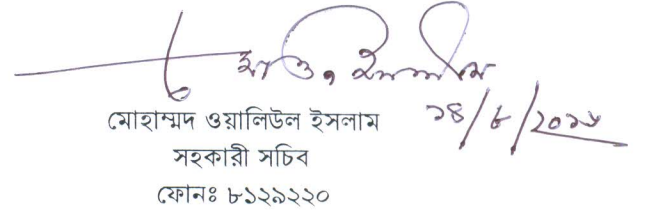 মোঃ ওঃ ইসলাম
১৪/৮/২০১৫
মোহাম্মদ ওয়ালিউল ইসলাম
সহকারী সচিব
ফোনঃ ৮১২৯২২০